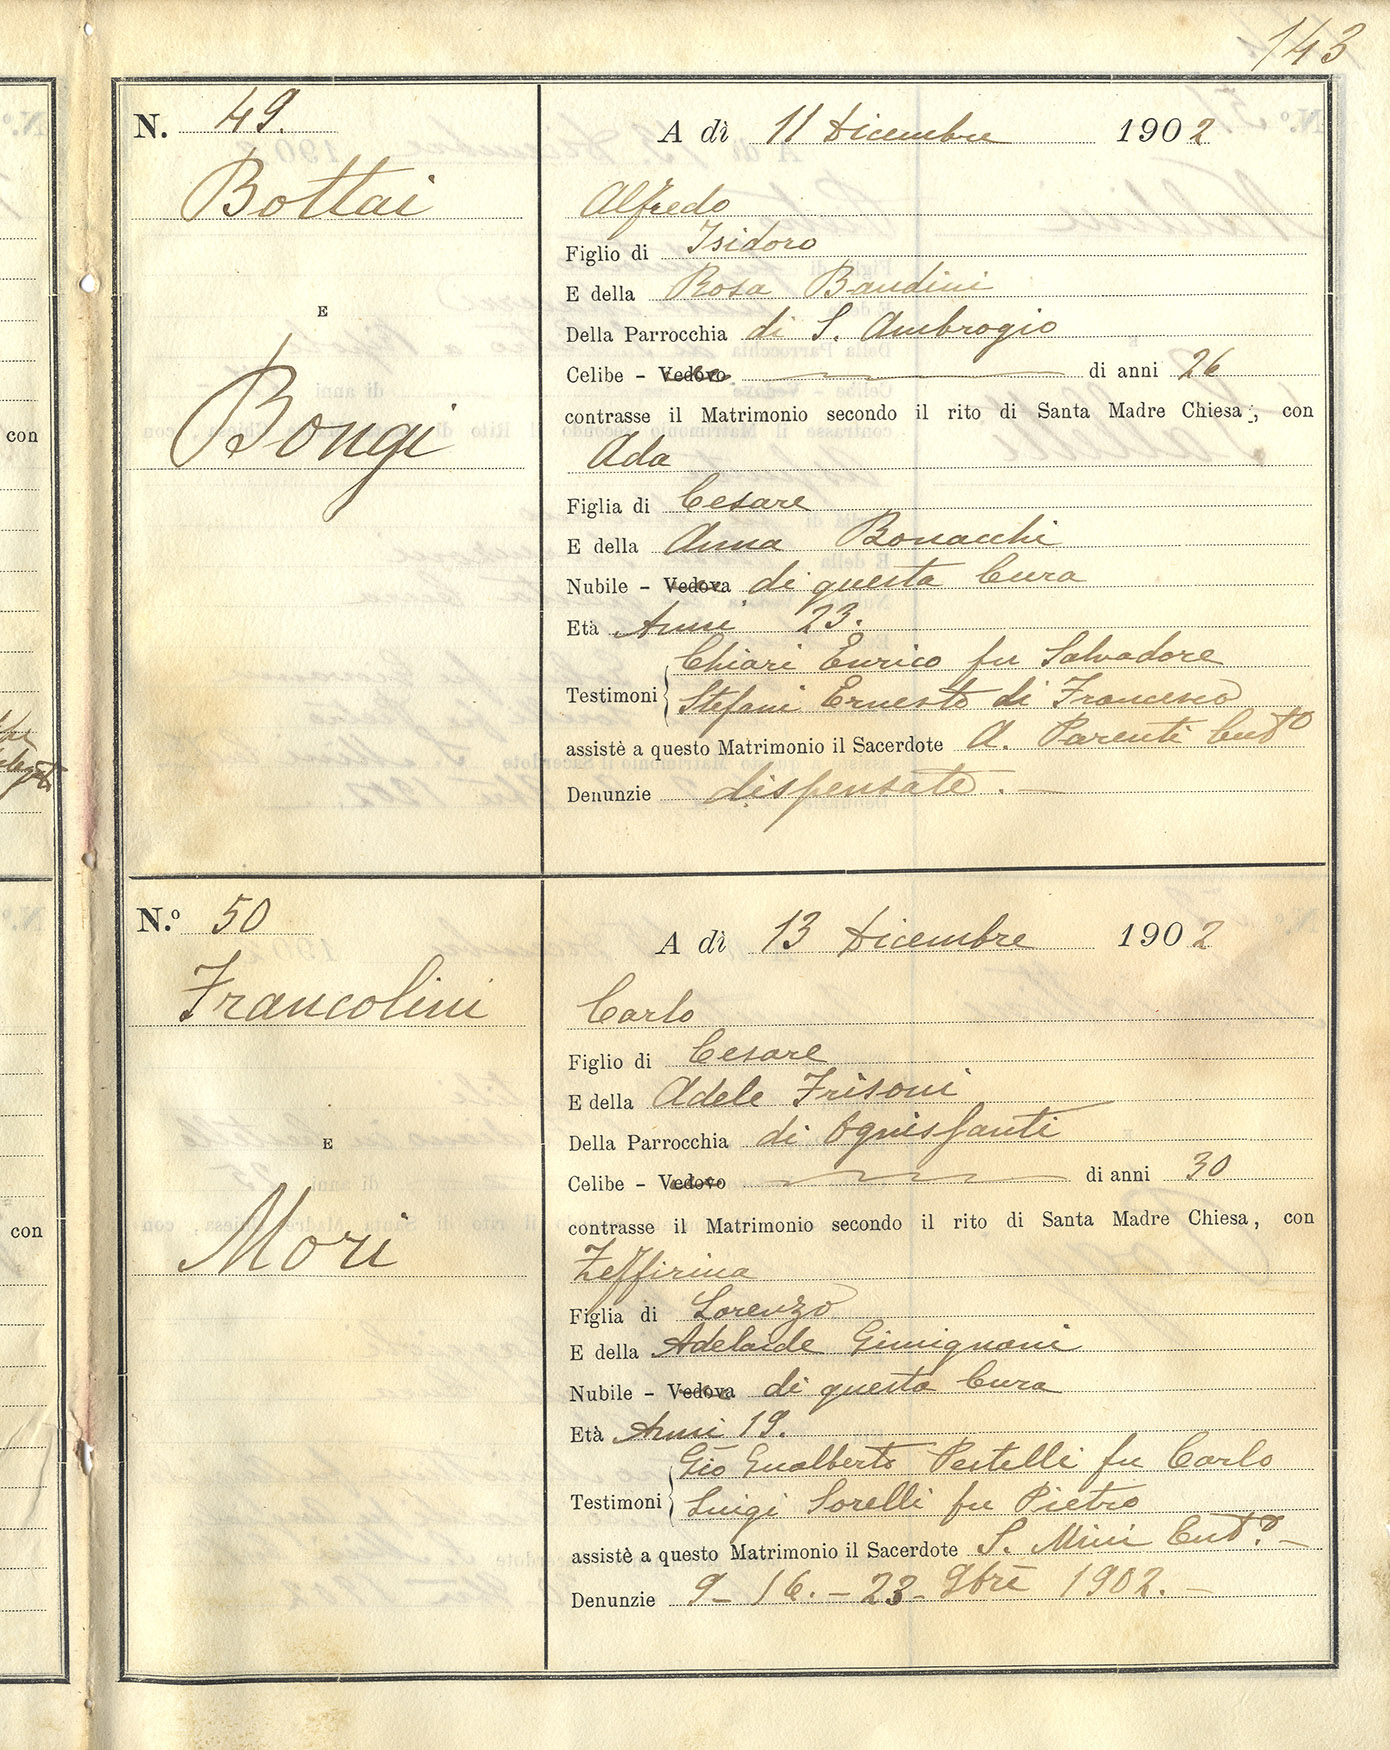 143
N. 49.
Bottai
E
Bongi
A dì 11 Dicembre 1902
Alfredo
Figlio di Isidoro
E della Rosa Bandini
Della Parrocchia di S. Ambrogio
Celibe – Vedovo di anni 26
contrasse il Matrimonio secondo il rito di Santa Madre Chiesa, con
Ada
Figlia di Cesare
E della Anna Bonacchi
Nubile – Vedova di questa Cura
Età Anni 23.
Chiari Enrico fu Salvadore
Testimoni
Stefani Ernesto di Francesco
assistè a questo Matrimonio il Sacerdote A. Parenti Curto
Denunzie dispensate. —
N.o 50
Francolini
E
Mori
A dì 13 Dicembre 1902
Carlo
Figlio di Cesare
E della Adele Frisoni
Della Parrocchia di Ognissanti
Celibe – Vedovo di anni 30
contrasse il Matrimonio secondo il rito di Santa Madre Chiesa, con
Zeffirina
Figlia di Lorenzo
E della Adelaide Gimignani
Nubile – Vedova di questa Cura
Età Anni 19.
Gio Gualberto Pestelli fu Carlo
Testimoni
Luigi Sorelli fu Pietro
assistè a questo Matrimonio il Sacerdote S. Mini Curto. –
Denunzie 9 – 16. – 23 – 9bre 1902. –
con
con